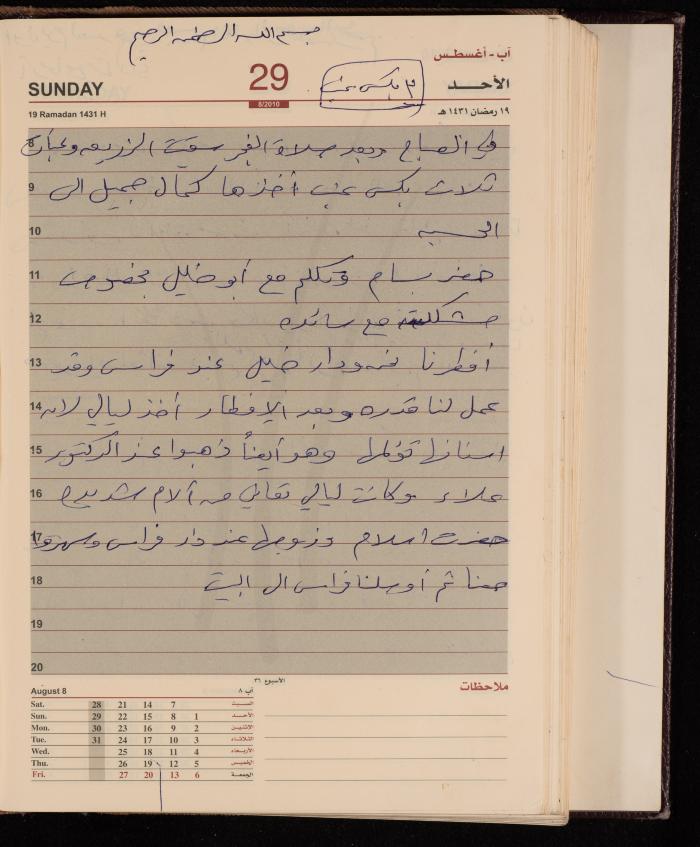 بسم الله الرحمن الرحيم
آب - أغسطس
SUNDAY 29 الأحد
8/2010
٣ بكس عنب
19 Ramadan 1431 H ١٩ رمضان ١٤٣١ هـ
8 في الصباح وبعد صلاة الفجر سقيت الزريعه وعبأت
9 ثلاث بكس عنب أخذها كمال جميل الى
10 الحسبه
11 حضر بسام وتكلم مع أبو خليل بخصوص
12 مشكلته مع سائده
13 أفطرنا نحن ودار خليل عند فراس وقد
14 عمل لنا قدره وبعد الإفطار أخذ ليالي لانه
15 اسنانها تؤلمها وهو أيضاً ذهبوا عند الدكتور
16 علاء وكانت ليالي تعاني من آلام شديده
17 حضرت اسلام وزوجها عند دار فراس وسهروا
18 معنا ثم أوصلنا فراس الى البيت
19
20
الأسبوع ٣٦
August 8 آب ٨
ملاحظات
Sat. 28 21 14 7 السبت
Sun. 29 22 15 8 1 الأحد
Mon. 30 23 16 9 2 الاثنين
Tue. 31 24 17 10 3 الثلاثاء
Wed. 25 18 11 4 الأربعاء
Thu. 26 19 12 5 الخميس
Fri. 27 20 13 6 الجمعة